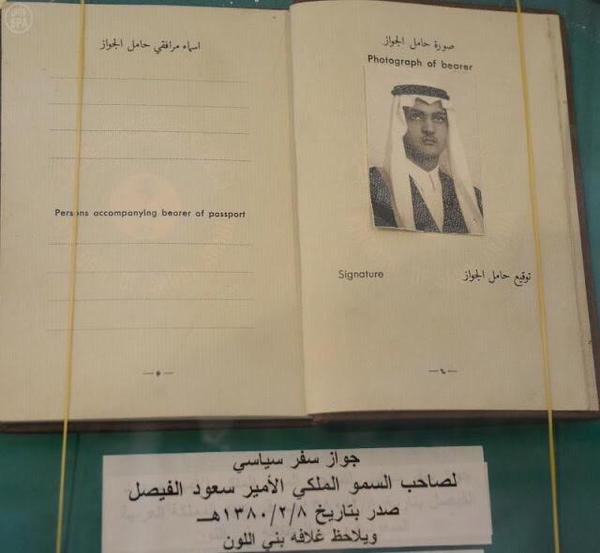 اسماء مرافقي حامل الجواز
Persons accompanying bearer of passport
صورة حامل الجواز
Photograph of bearer
Signature
توقيع حامل الجواز
جواز سفر سياسي
لصاحب السمو الملكي الأمير سعود الفيصل
صدر بتاريخ ١٣٨٠/٢/٨هـ
ويلاحظ غلافه بني اللون